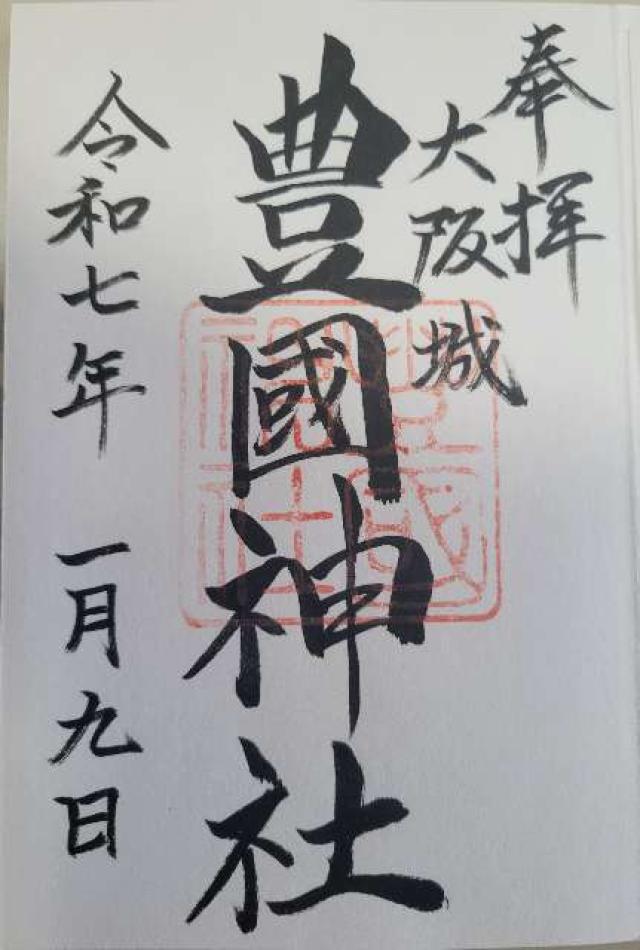 奉拝
大阪城
豊國神社
令和七年 一月九日
豊國神社